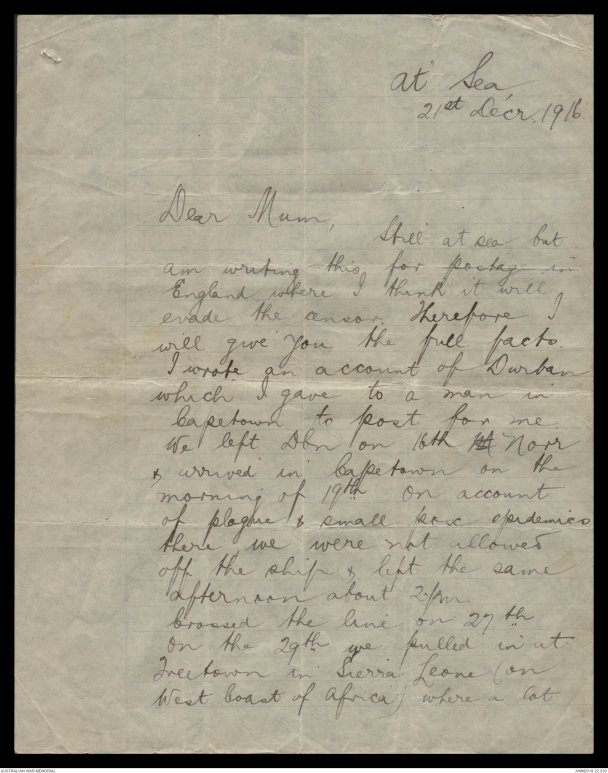 At Sea,
21st Decr. 1916.
Dear Mum,
Still at sea but
am writing this, for postage in
England where I think it will
evade the censor. Therefore I
will give you the full facts.
I wrote an account of Durban
which I gave to a man in
Capetown to post for me.
We left Dbn on 16th Novr
& arrived in Capetown on the
morning of 19th. On account
of plague & small pox epidemics
there we were not allowed
off the ship & left the same
afternoon about 2pm.
Crossed the line on 27th
On the 29th we pulled in at
Freetown in Sierra Leone (on
West Coast of Africa) where a lot
AUSTRALIAN WAR MEMORIAL